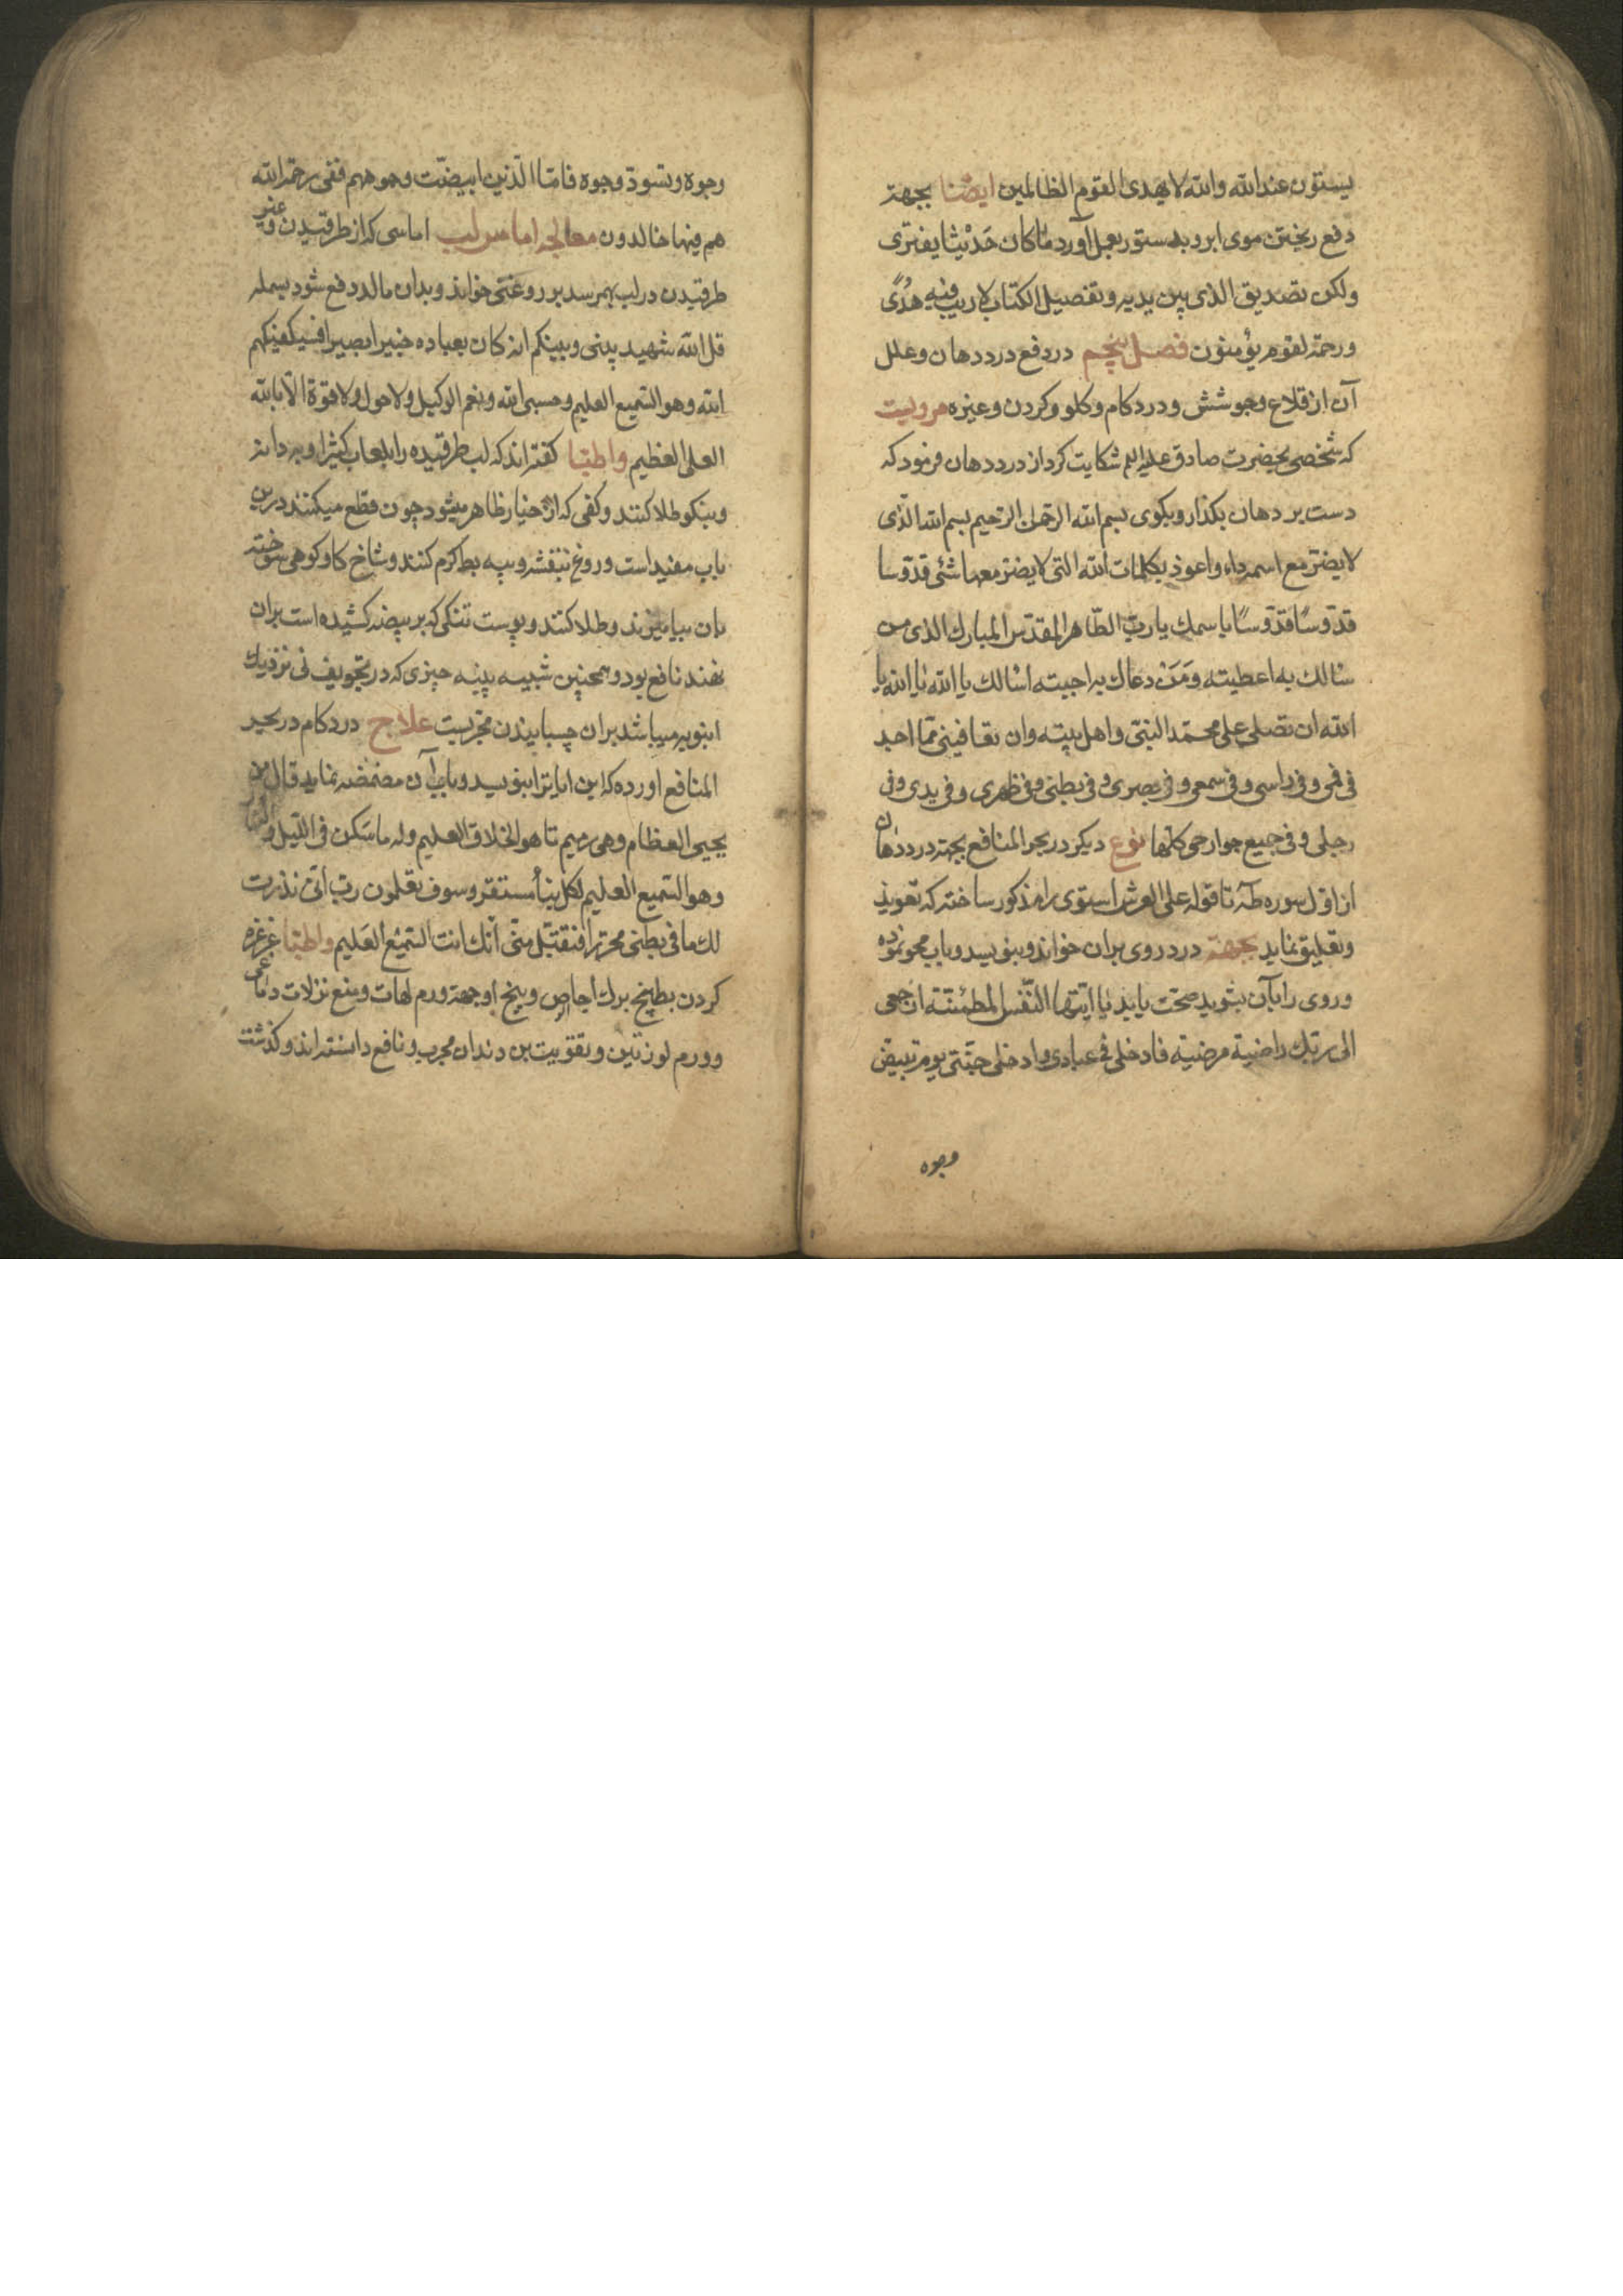 یستون عند الله والله لا یهدی القوم الظالمین ایضا بجهة
دفع ریختن موی ابرو بدستور بعمل آورد ما کان حَدیْثا یفتری
ولکن تصدیق الذی بین یدیه وتفصیل الکتاب لا ریب فیه هُدًی
ورحمة لقوم یؤمنون فصل پنجم در دفع درد دهان وعلل
آن از قلاع وجوشش ودرد کام وکلو وکردن وغیره مرویست
که شخصی بحضرت صادق علیه السلم شکایت کرد از درد دهان فرمود که
دست بر دهان بکذار وبکوی بسم الله الرحمن الرحیم بسم الله الذی
لا یضر مع اسمه داء واعوذ بکلمات الله التی لا یضر معها شئ قدّوسا
قدّوسًا قدّوسًا باسمك یا ربّ الطّاهر المقدّس المبارك الذی من
سٔالك به اعطیته وَمَنْ دعاك به اجبته اسٔالك یا الله یا الله یا
الله ان تصلی علی محمّد النبیّ واهل بیته وان تعافینی ممّا اجد
فی فمی وفی راسی وفی سمعی وفی بصری وفی بطنی وفی ظهری وفی یدی وفی
رجلی وفی جمیع جوارحی کلّها نوع دیکر در بحر المنافع بجهة درد دهان
از اوّل سوره طه تا قوله علی العرش استوی را مذکور ساخته که تعویذ
وتعلیق نماید بجهة درد روی بران خواند وبنویسد وباب محو نموده
وروی را بآن بشوید صحّت یابد یا ایّتها النّفس المطمئنّة ارجعی
الی ربّك راضیة مرضیة فادخلی فی عبادی وادخلی جنّتی یوم تبیضّ
وجوه
وجوه وتسودّ وجوه فامّا الّذین ابیضّت وجوههم ففی رحمة الله
هم فیها خالدون معالجه اماس لب اماسی که از طرقیدن وغیر
طرقیدن در لب بهمرسد بر روغنی خواند وبدان مالد دفع شود بسمله
قل الله شهید بینی وبینکم انه کان بعباده خبیرا بصیرا فسیکفیکهم
الله وهو السّمیع العلیم وحسبی الله ونعم الوکیل ولا حول ولا قوة الّا بالله
العلی العظیم واطبّا کفته‌اند که لب طرقیده را بلعاب کثیرا وبهدانه
وبنکو طلا کنند وکفی که از خیار ظاهر میشود چون قطع میکنند درین
باب مفید است وروغن بنفشه وپیه بط کرم کنند وشاخ کاو کوهی سوخته
بان بیامیزند وطلا کنند وپوست تنکی که بر بیضه کشیده است بران
نهند نافع بود وهمچنین شبیه پنبه چیزی که در تجویف نی نزدیك
انبوبه میباشد بران چسبانیدن مجرّبست علاج درد کام در بحر
المنافع اورده که این ایات را بنویسد وبآب آن مضمضه نماید قال من
یحیی العظام وهی رمیم تا هو الخلاق العلیم وله ما سَکن فی اللّیل والنهار
وهو السّمیع العلیم لکل نبأ مستقر وسوف تعلمون ربّ انّی نذرت
لك ما فی بطنی محرّرا فتقبّل منّی انّك انت السّمیْع العَلیم واطبّا غرغره
کردن بطبیخ برك اجاص وبیخ او جهة ورم لهات ومنع نزلات دماغی
وورم لوزتین وتقویت بن دندان مجرب ونافع دانسته‌اند وکذشت